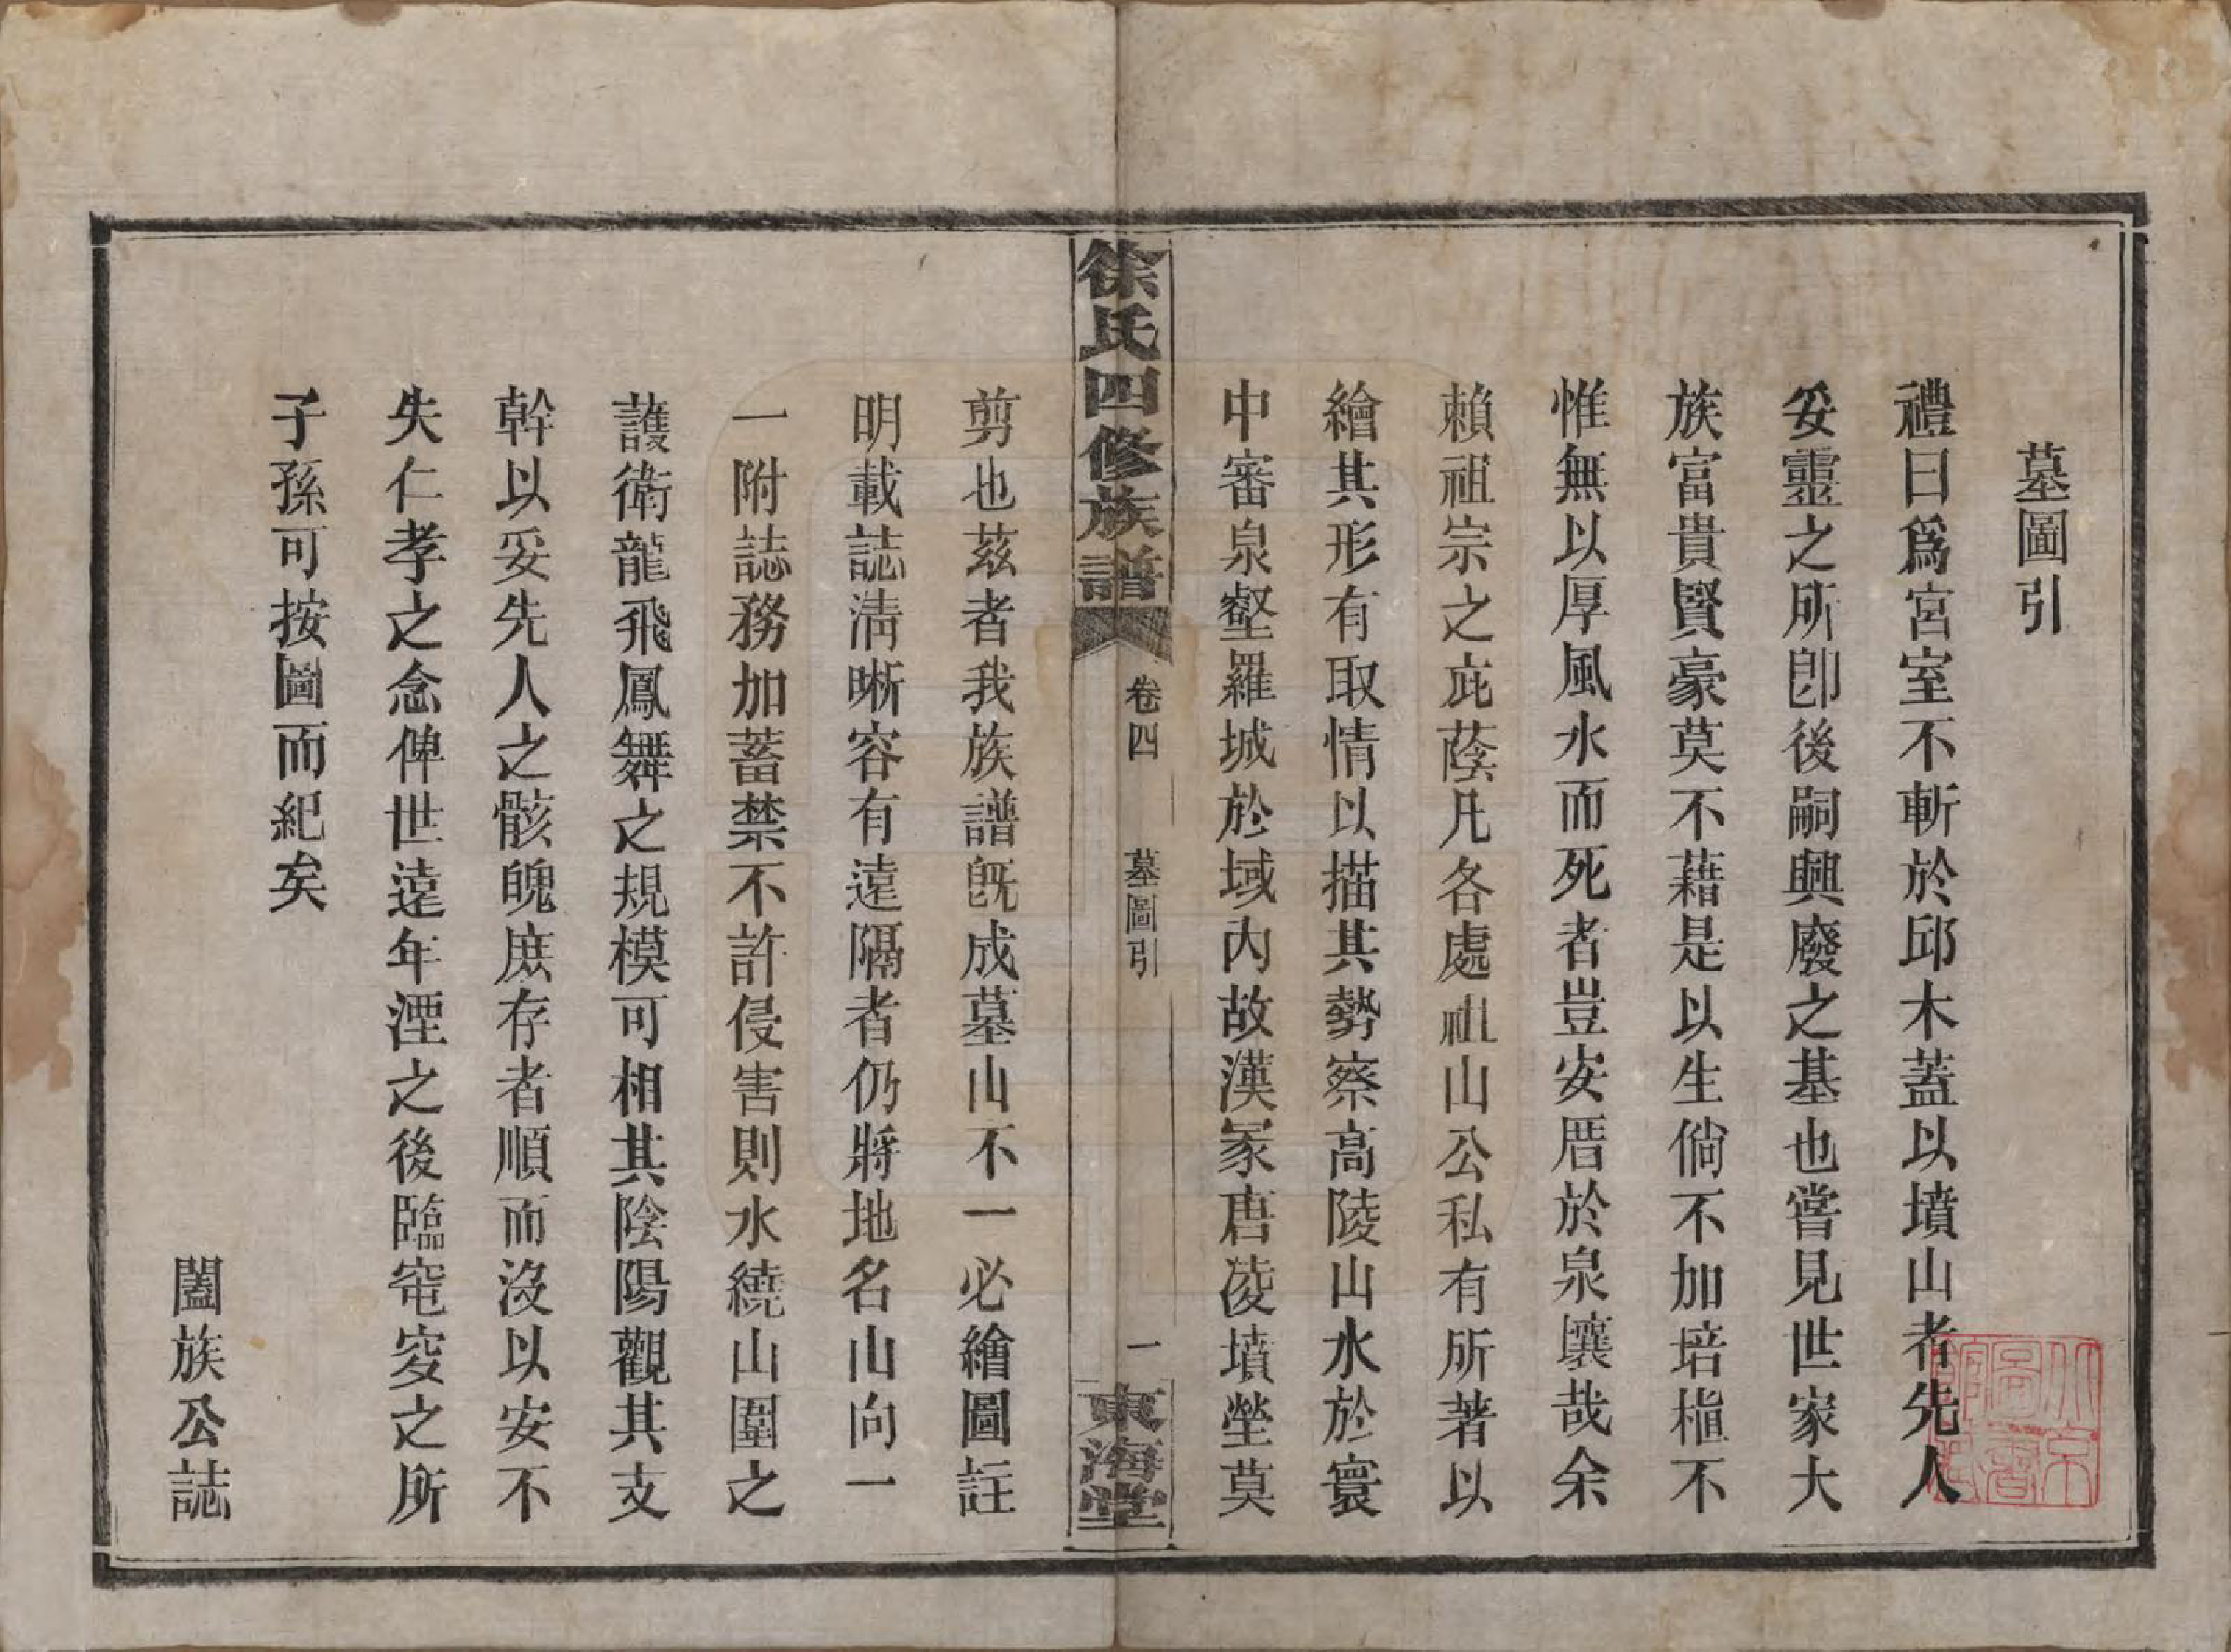 墓圖引
禮曰爲宮室不斬於邱木蓋以墳山者先人
妥靈之所卽後嗣興廢之基也嘗見世家大
族富貴賢豪莫不藉是以生倘不加培植不
惟無以厚風水而死者豈安厝於泉壤哉余
賴祖宗之庇蔭凡各處祖山公私有所著以
繪其形有取情以描其勢察高陵山水於寰
中審泉壑羅城於域內故漢冢唐凌墳塋莫
徐氏四修族譜
卷四
墓圖引
一
東海堂
剪也茲者我族譜旣成墓山不一必繪圖註
明載誌淸晰容有遠隔者仍將地名山向一
一附誌務加蓄禁不許侵害則水繞山圍之
護衛龍飛鳳舞之規模可相其陰陽觀其支
幹以妥先人之骸魄庶存者順而沒以安不
失仁孝之念俾世遠年湮之後臨窀窆之所
子孫可按圖而紀矣
闔族公誌
北京
圖書
館藏